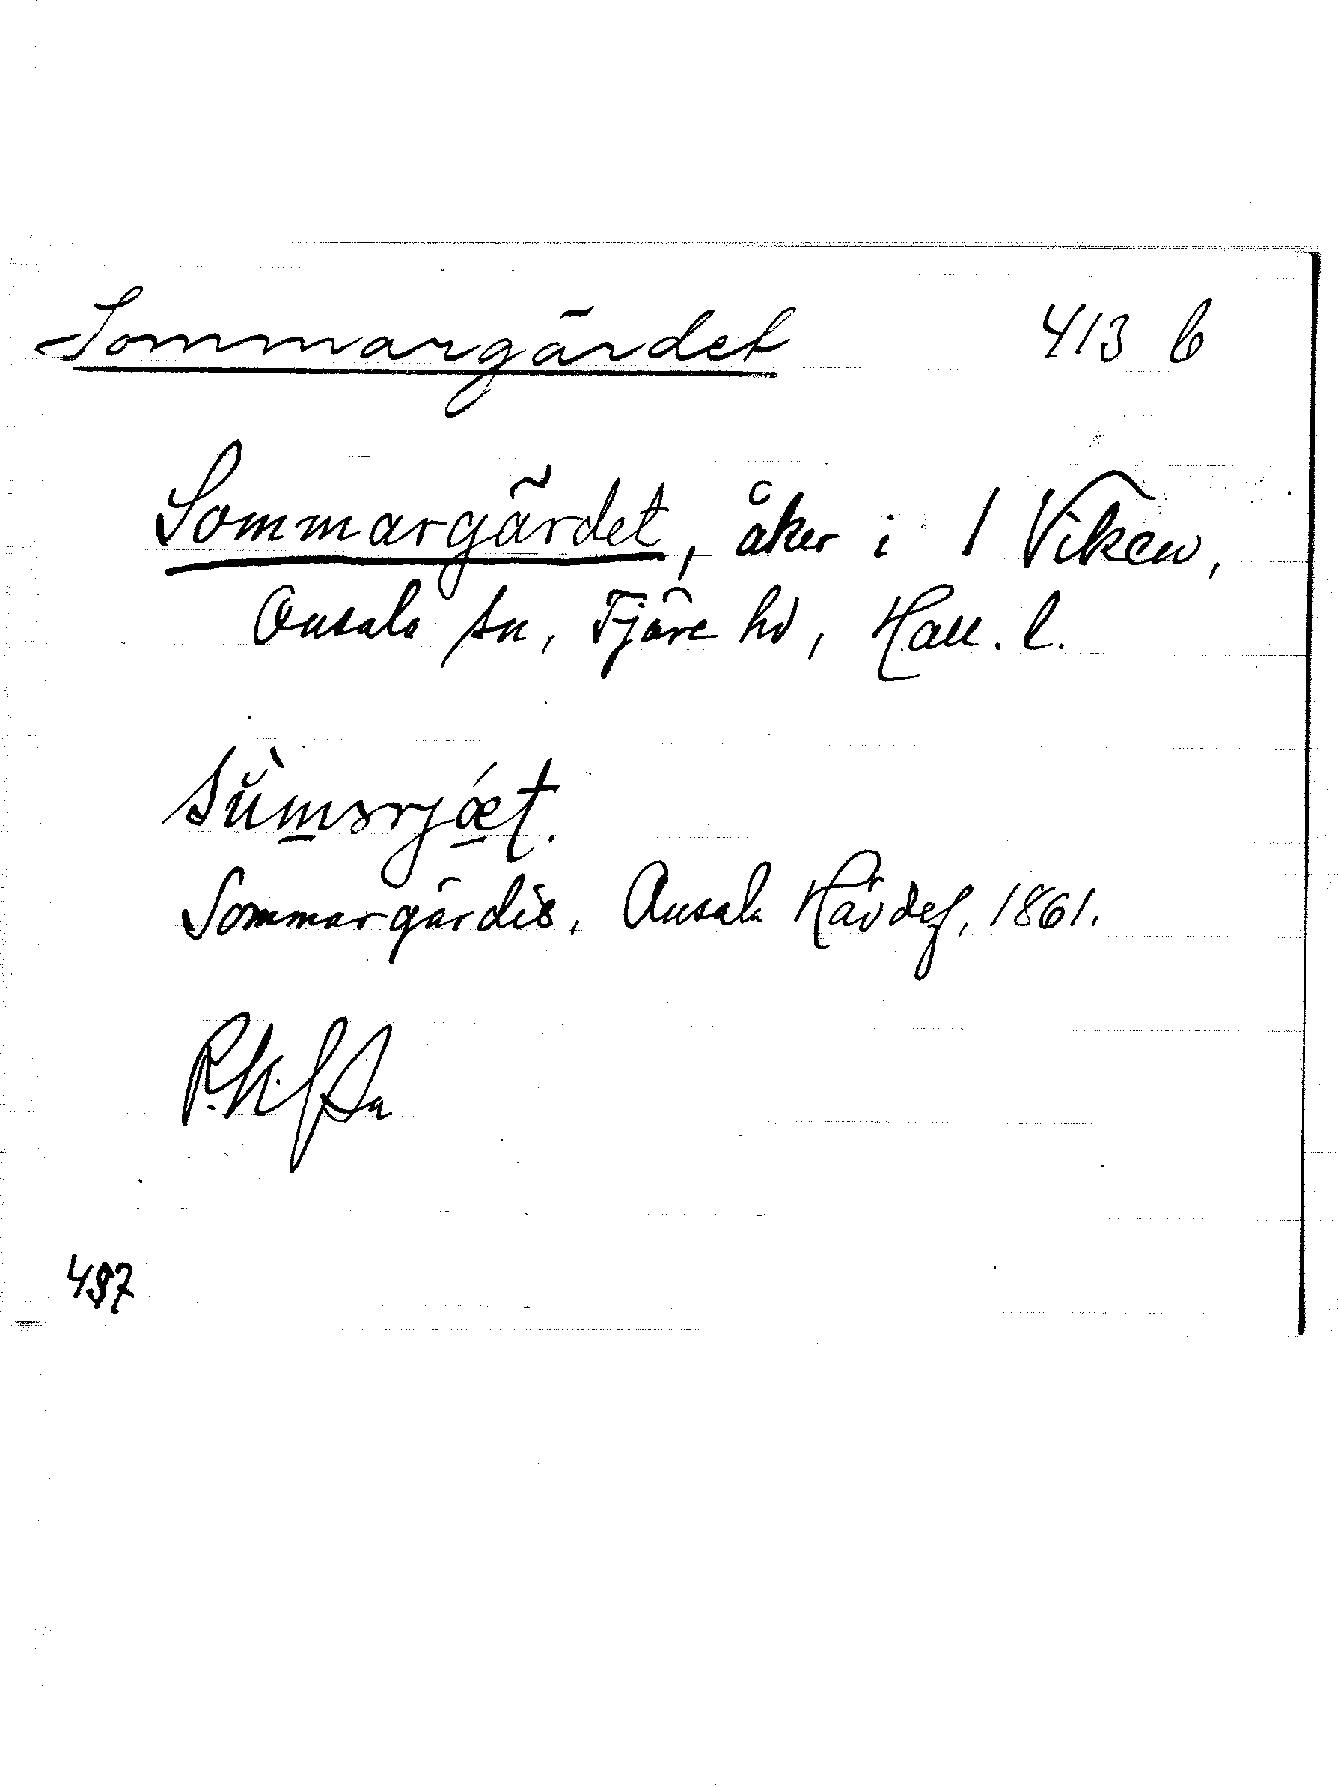 Sommargärdet 413 b
Sommargärdet, åker i 1 Viken,
Onsala sn, Fjäre hd, Hall. l.
Sommargärdis, Onsala Hävdef, 1861.
497